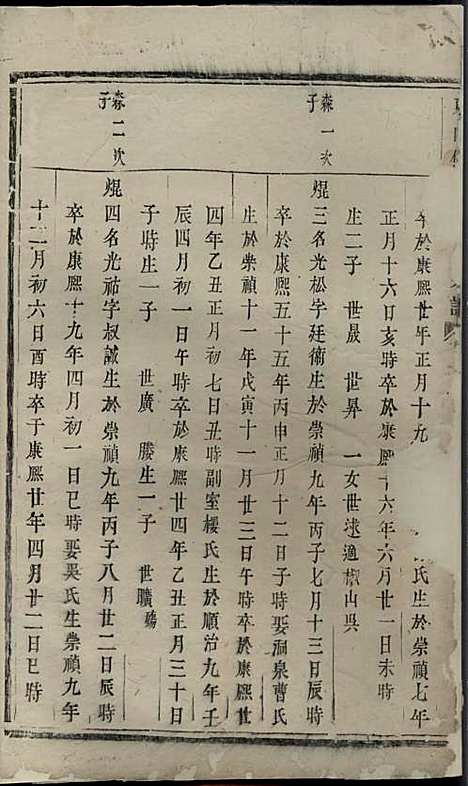 卒於康熙廿年正月十九 氏生於崇禎七年
正月十六日亥時卒於康熙十六年六月廿一日未時
生二子 世晟 世昇 一女世逑適椒山吳
森一次子
焜三名光松字廷衛生於崇禎九年丙子七月十三日辰時
卒於康熙五十五年丙申正月十二日子時娶洞泉曹氏
生於崇禎十一年戊寅十一月廿三日午時卒於康熙廿
四年乙丑正月初七日丑時副室樓氏生於順治九年壬
辰四月初一日午時卒於康熙廿四年乙丑正月三十日
子時生一子 世廣 媵生一子 世曠殤
森二次子
焜四名光祜字叔誠生於崇禎九年丙子八月廿二日辰時
卒於康熙十九年四月初一日巳時娶吳氏生崇禎九年
十二月初六日酉時卒于康熙廿年四月廿二日巳時